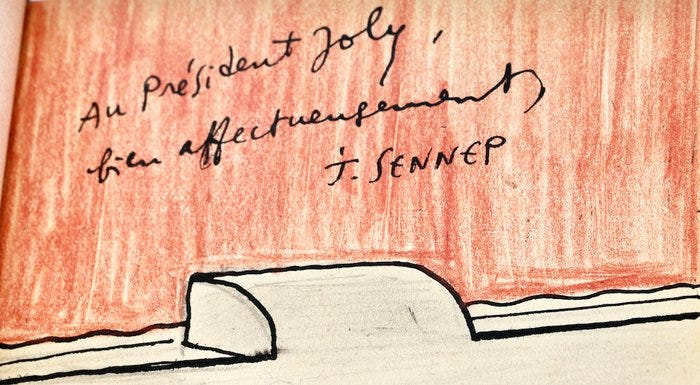 Au Président Joly,
bien affectueusement,
J. SENNEP